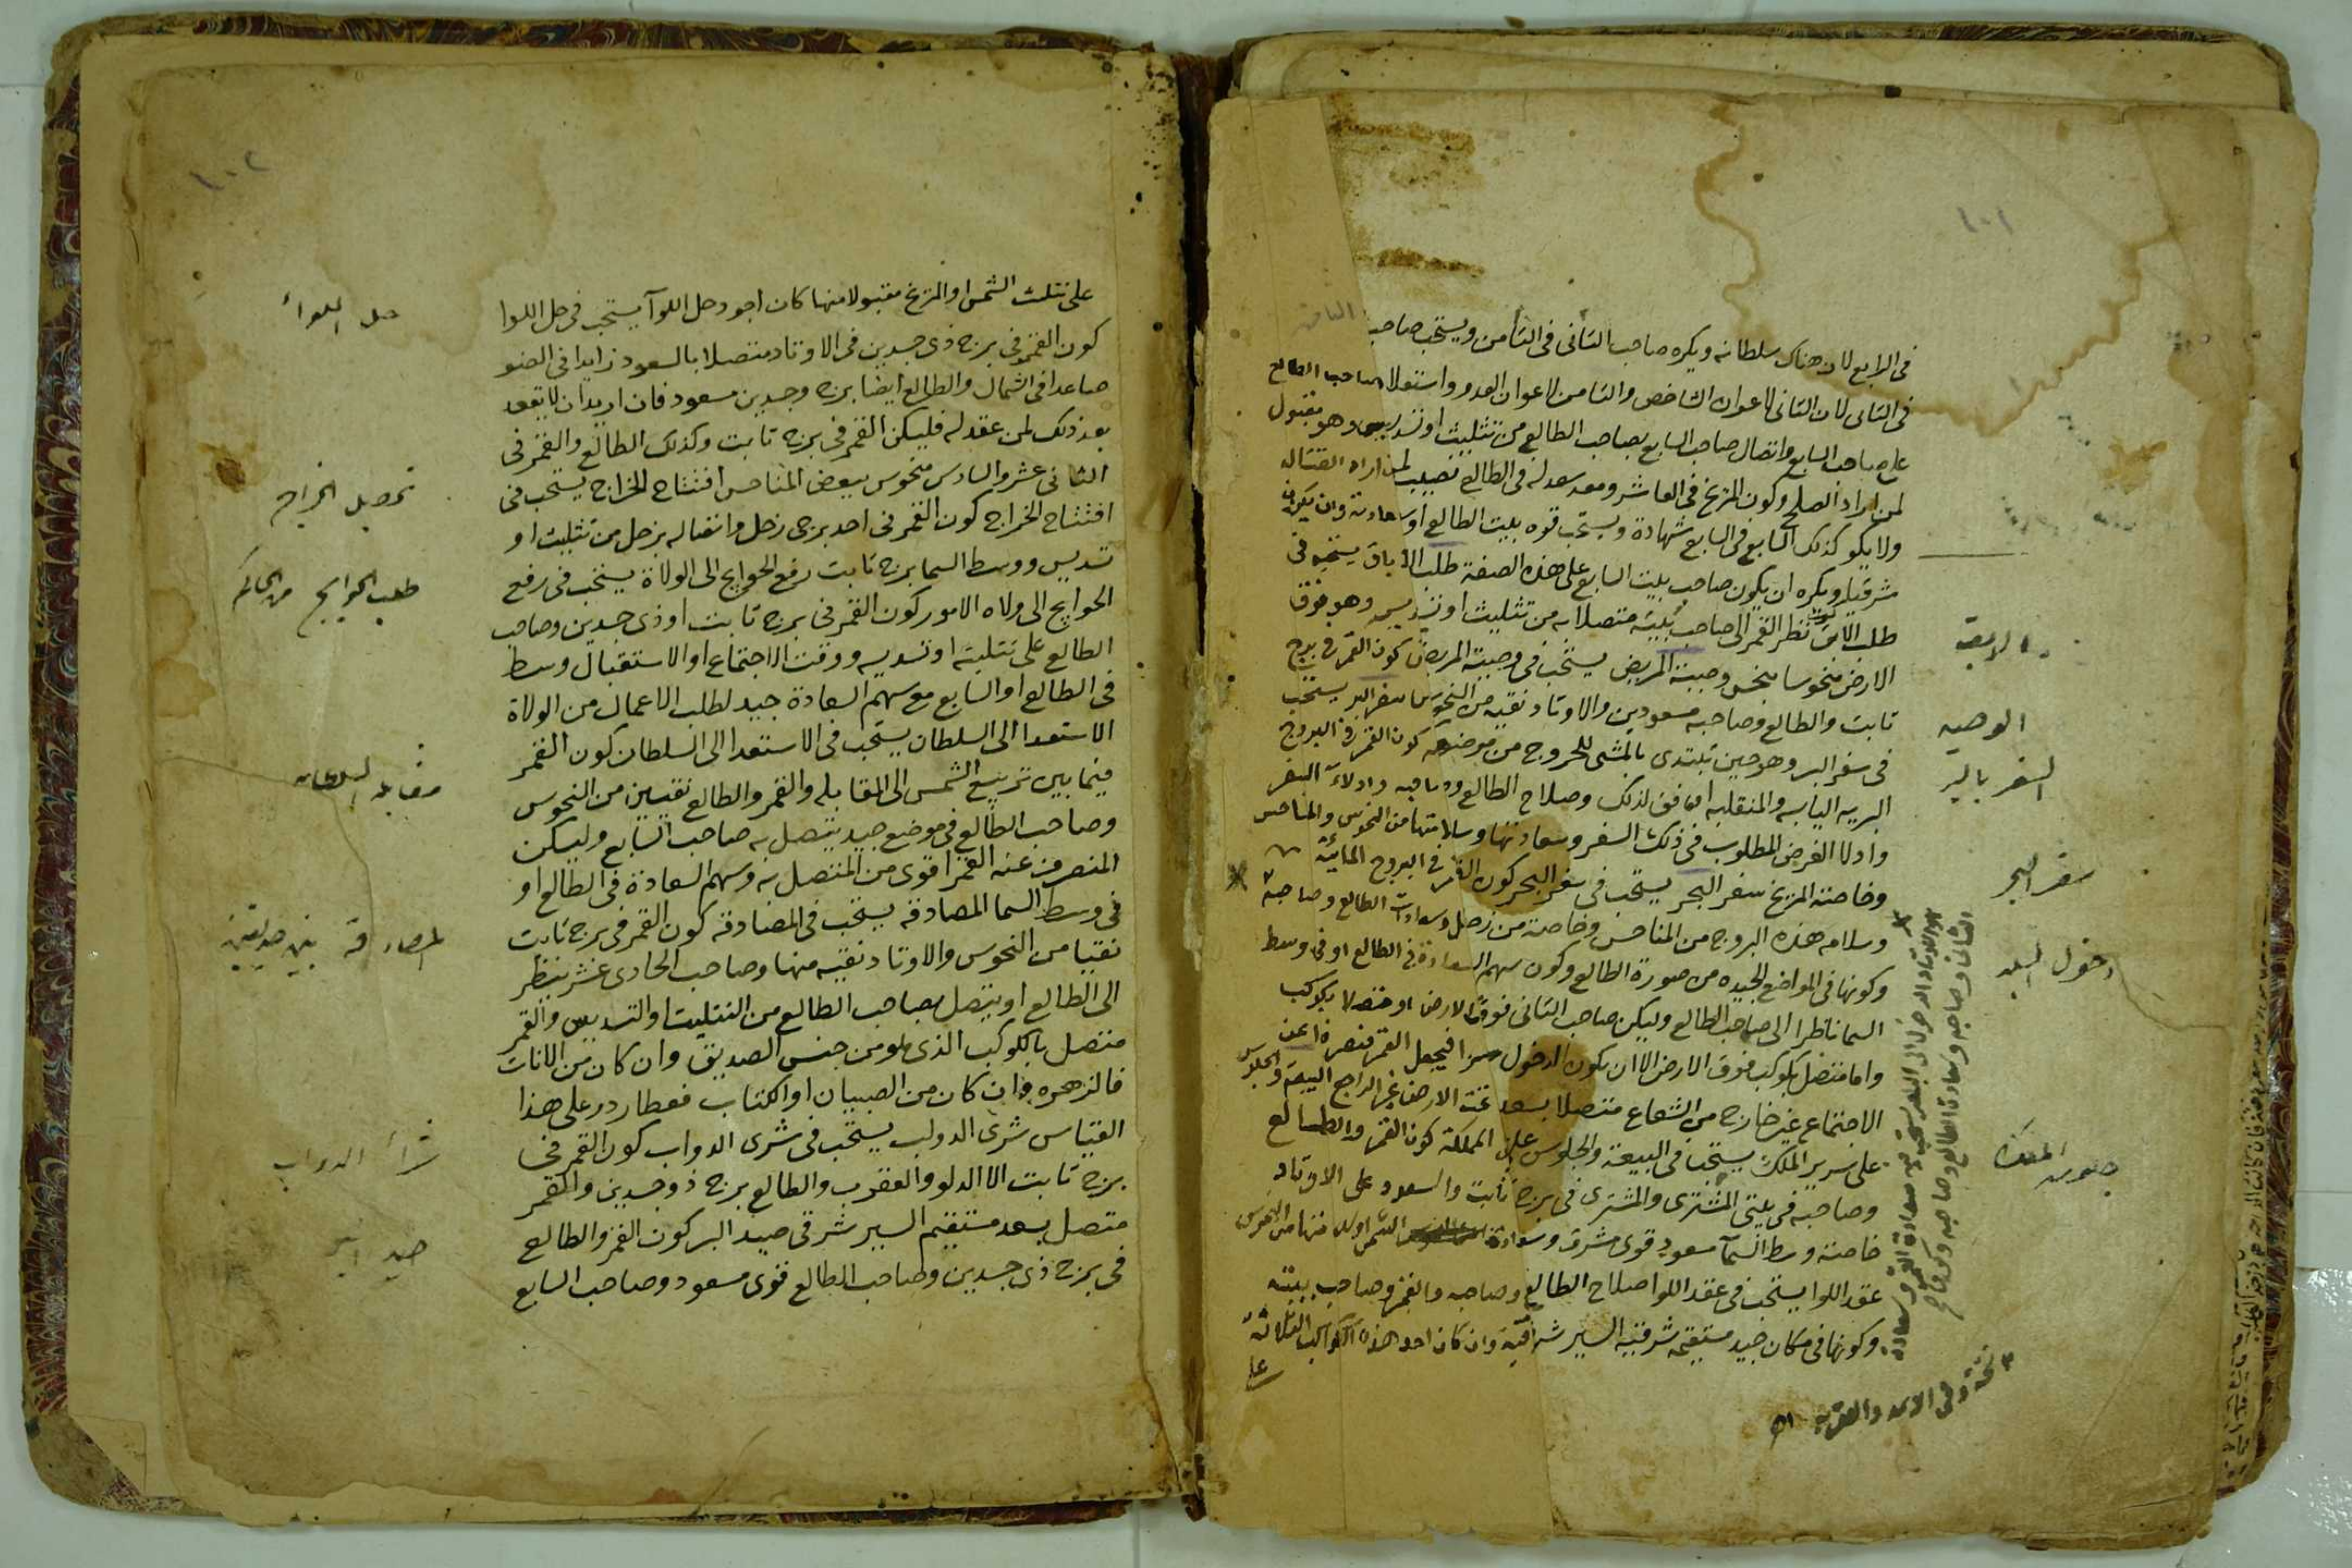 ١٠١
في الرابع لان هناك سلطانه ويكره صاحب الثاني في الثامن ويستحب صاحب الثامن
في الثاني لان الثاني لاعوان الشاخص والثامن لاعوان العدو واستعلا صاحب الطالع
على صاحب السابع واتصال صاحب السابع بصاحب الطالع من تثليث او تسديس وهو مقبول
لمن اراد الصلح وكون المريخ في العاشر ومعه سعد له في الطالع نصيب لمن اراد القتال
ولا يكو كذلك السابع في السابع شهادة ويستحب قوه بيت الطالع او سعادته وان يكون
شرقيا ويكره ان يكون صاحب بيت السابع على هذه الصفة طلب الاباق يستحب في
طلب الابق نظر القمر الى صاحب بيته متصلا به من تثليث او تسديس وهو فوق
الارض منحوسا بنحس وصية المريض يستحب في وصية المريض كون القمر في برج
ثابت والطالع وصاحبه مسعودين والاوتاد نقيه من النحوس سفر البر يستحب
في سفر البر وهو حين تبتدى بالمشى للخروج من موضعه كون القمر في البروج
البريه اليابسه والمنقلبه اوفق لذلك وصلاح الطالع وصاحبه وادلاء السفر
وادلا الغرض المطلوب في ذلك السفر وسعادتها وسلامتها من النحوس والمناحس
وخاصته المريخ سفر البحر يستحب في سفر البحر كون القمر في البروج المائية
وسلامه هذه البروج من المناحس وخاصته من زحل وسعادات الطالع وصاحبه
وكونها في المواضع الجيده من صورة الطالع وكون سهم السعادة في الطالع او في وسط
السما ناظرا الى صاحب الطالع وليكن صاحب الثاني فوق الارض او متصلا بكوكب
واما متصل بكوكب فوق الارض الا ان يكون الدخول سرا فيجعل القمر منصرفا عن
الاجتماع غير خارج من الشعاع متصلا بسعد تحت الارض غير الراجع البيعة والجلوس
على سرير الملك يستحب في البيعة والجلوس على المملكة كون القمر والطالع
وصاحبه في بيتي المشترى والمشترى في برج ثابت والسعود على الاوتاد
خاصته وسط السمآ مسعود قوى مشرق وسعادة الشمس
عقد اللوا يستحب في عقد اللوا صلاح الطالع وصاحبه والقمر وصاحب بيته
وكونها في مكان جيد مستقيمه شرقيه السير شراقيه وان كان احد هذه الكواكب الثلاثة
على
الابق
الوصيه
السفر بالبر
سفر البحر
دخول البلد
جلوس المملكة
الثاني وصاحبه وسعادة الطالع وصاحبه
نسخة وفي الاسد والعقرب
١٠٢
على تثليث الشمس او المريخ مقبولا منها كان اجود حل اللوآ يستحب في حل اللوا
كون القمر في برج ذى جسدين في الاوتاد متصلا بالسعود زايدا في الضو
صاعدا في الشمال والطالع ايضا برج وجسدين مسعود فان اريد ان لا يعقد
بعد ذلك لمن عقد له فليكن القمر في برج ثابت وكذلك الطالع والقمر في
الثاني عشر والسادس منحوس ببعض المناحس افتتاح الخراج يستحب في
افتتاح الخراج كون القمر في احد برجى زحل واتصاله بزحل من تثليث او
تسديس ووسط السما برج ثابت رفع الحوايج الى الولاة يستحب في رفع
الحوايج الى ولاه الامور كون القمر في برج ثابت او ذى جسدين وصاحب
الطالع على تثليثه او تسديسه ووقت الاجتماع او الاستقبال وسط
في الطالع او السابع مع سهم السعادة جيد لطلب الاعمال من الولاة
الاستعدا الى السلطان يستحب في الاستعدا الى السلطان كون القمر
فيما بين تربيع الشمس الى المقابله والقمر والطالع نقيين من النحوس
وصاحب الطالع في موضع جيد يتصل به صاحب السابع وليكن
المنصرف عنه القمر اقوى من المتصل به وسهم السعادة في الطالع او
في وسط السما المصادقه يستحب في المصادقه كون القمر في برج ثابت
نقيا من النحوس والاوتاد نقيه منها وصاحب الحادى عشر ينظر
الى الطالع او يتصل بصاحب الطالع من التثليث او التسديس والقمر
متصل بالكوكب الذى هو من جنس الصديق وان كان من الاناث
فالزهره وان كان من الصبيان او الكتاب فعطارد وعلى هذا
القياس شرى الدواب يستحب في شرى الدواب كون القمر في
برج ثابت الا الدلو والعقرب والطالع برج ذو جسدين والقمر
متصل بسعد مستقيم السير شرقى صيد البر كون القمر والطالع
في برج ذى جسدين وصاحب الطالع قوى مسعود وصاحب السابع
حل اللواء
تحصيل الخراج
طلب الحوايج من الحاكم
مقابلة السلطان
المصادقة بين صديقين
شراء الدواب
صيد البر